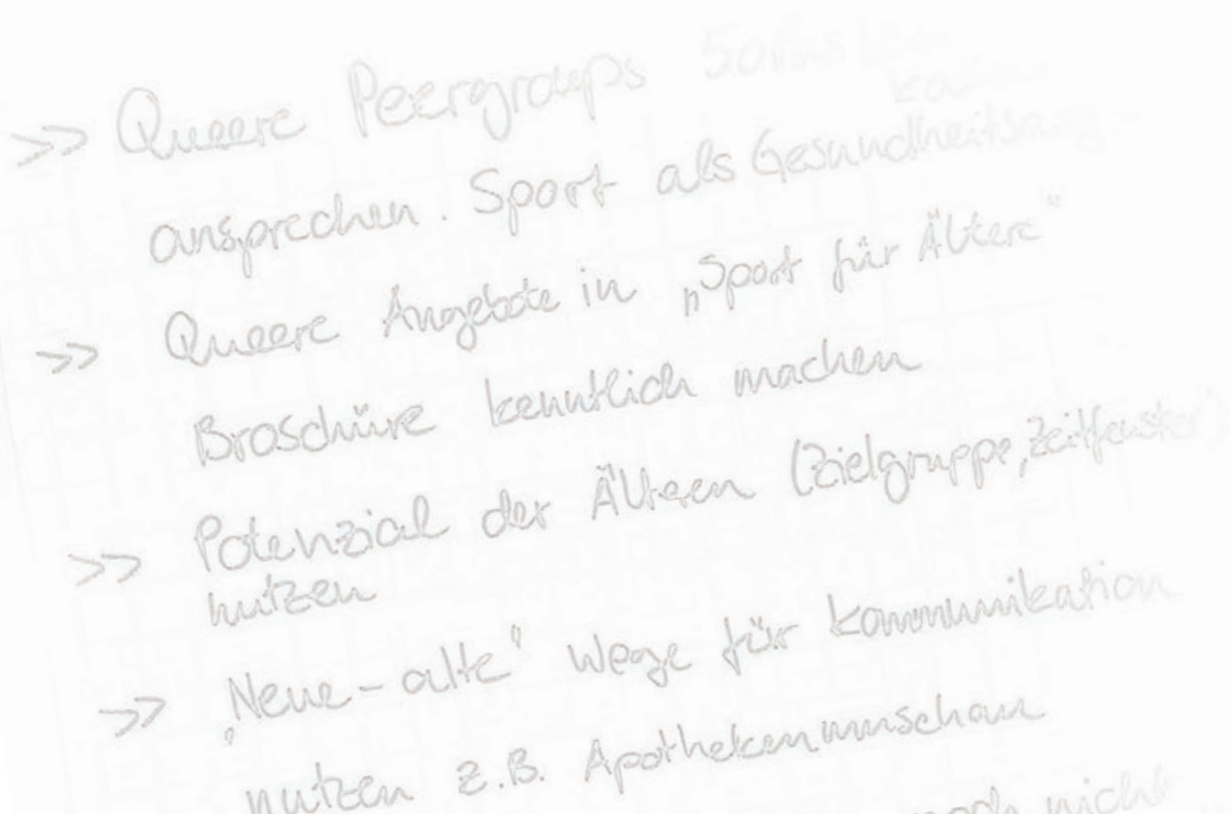 >> Queere Peergroups
ansprechen. Sport als
>> Queere Angebote in „Sport für Ältere“
Broschüre kenntlich machen
>> Potenzial der Älteren (Zielgruppe, Zeitfenster)
nutzen
>> „Neue-alte“ Wege für Kommunikation
nutzen z.B. Apothekenumschau
noch nicht